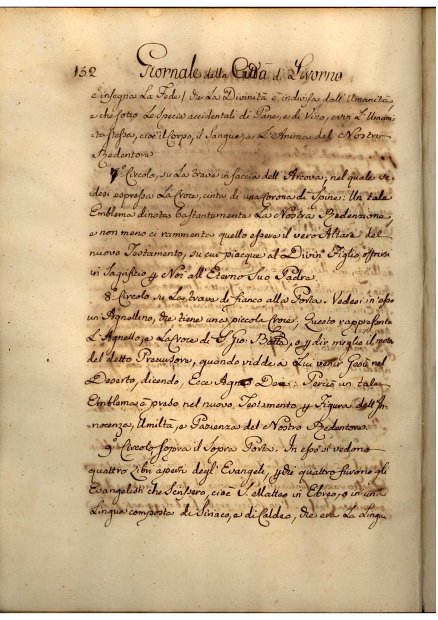 152 Giornale della Città di Livorno
c'insegna La Fede / che La Divinità è indivisa dall'Umanità,
e che sotto Le specie accidentali di Pane, e di Vino, evvi L'Umani
tà stessa, cioè il Corpo, il Sangue, e L'Anima del Nostro
Redentore
7° Circolo, su La trave in faccia dell'Arcova, nel quale ve
desi espressa La Croce, cinta di una Corona di Spine: Un tale
Emblema dinota bastantemente La Nostra Redenzione,
e non meno ci rammenta quello essere il vero Altare del
nuovo Testamento, su cui piacque al Divin Figlio offrirsi
in Sagrifizio p Noi all'Eterno Suo Padre.
8° Circolo su La trave di fianco alla Porta. Vedesi in esso
un Agnellino, che tiene una piccola Croce, Questo rappresenta
L'Agnello, e La Croce di S. Gio: Batta, o p dir meglio il
del detto Precursore, quando vidde a Lui venir Gesù nel
Deserto, dicendo, Ecce Agnus Dei: Perciò un tale
Emblema è preso nel nuovo Testamento p Figura dell'In
nocenza, Umiltà, e Pazienza del Nostro Redentore.
9° Circolo sopra il Sopra Porta. In esso si vedono
quattro Libri aperti degl'Evangeli, p che quattro furono gli
Evangelisti che Scrissero, cioè S. Matteo in Ebreo, o in una
Lingua composta di Siriaco, e di Caldeo, che era La Lingu